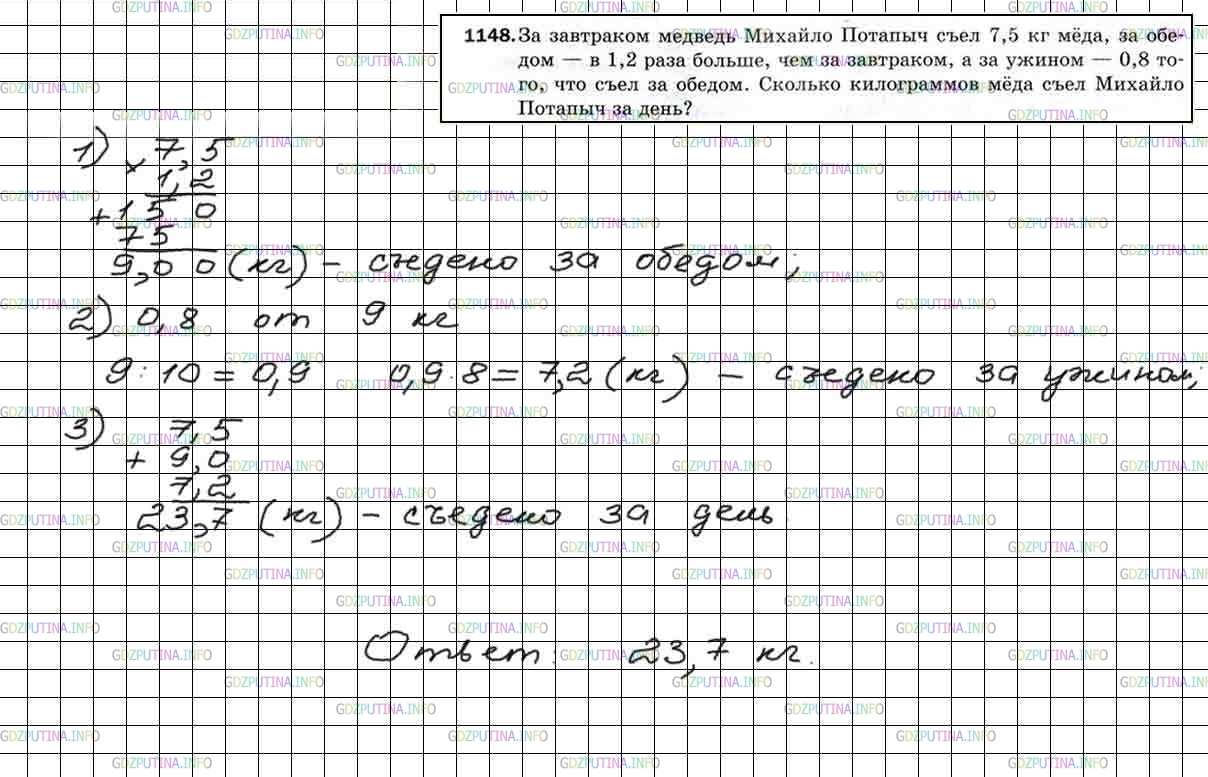 1148. За завтраком медведь Михайло Потапыч съел 7,5 кг мёда, за обе-
дом — в 1,2 раза больше, чем за завтраком, а за ужином — 0,8 то-
го, что съел за обедом. Сколько килограммов мёда съел Михайло
Потапыч за день?
1) × 7,5
1,2
+ 1 5 0
7 5
9,0 0 (кг) - съедено за обедом;
2) 0,8 от 9 кг
9 : 10 = 0,9 0,9 · 8 = 7,2 (кг) - съедено за ужином;
3) 7,5
+ 9,0
7,2
23,7 (кг) - съедено за день
Ответ: 23,7 кг.
GDZPUTINA.INFO